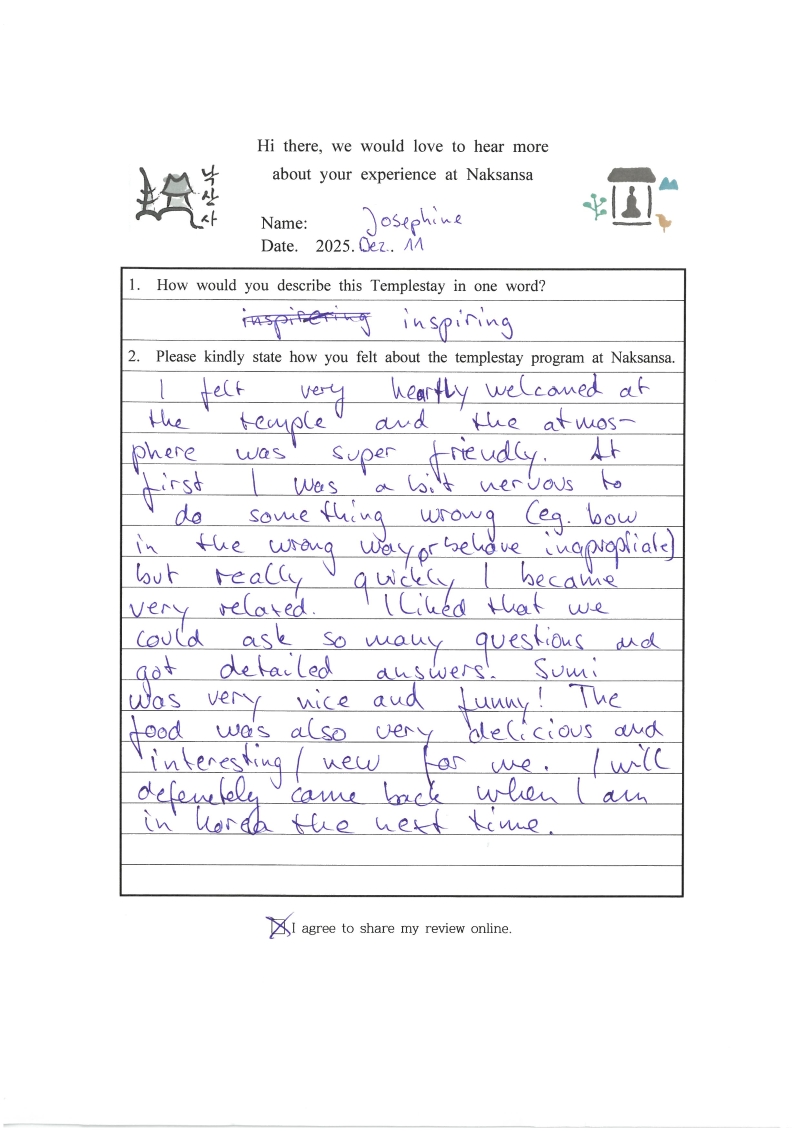 Hi there, we would love to hear more
about your experience at Naksansa
낙
산
사
Name: Josephine
Date. 2025. Dez.. 11
1. How would you describe this Templestay in one word?
inspirering inspiring
2. Please kindly state how you felt about the templestay program at Naksansa.
I felt very heartly welcomed at
the temple and the atmos-
phere was super friendly. At
first I was a bit nervous to
do something wrong (eg. bow
in the wrong way or behave inapropriate)
but really quickly I became
very relaxed. I liked that we
could ask so many questions and
got detailed answers. Sumi
was very nice and funny! The
food was also very delicious and
interesting / new for me. I will
defenetely came back when I am
in Korea the next time.
I agree to share my review online.